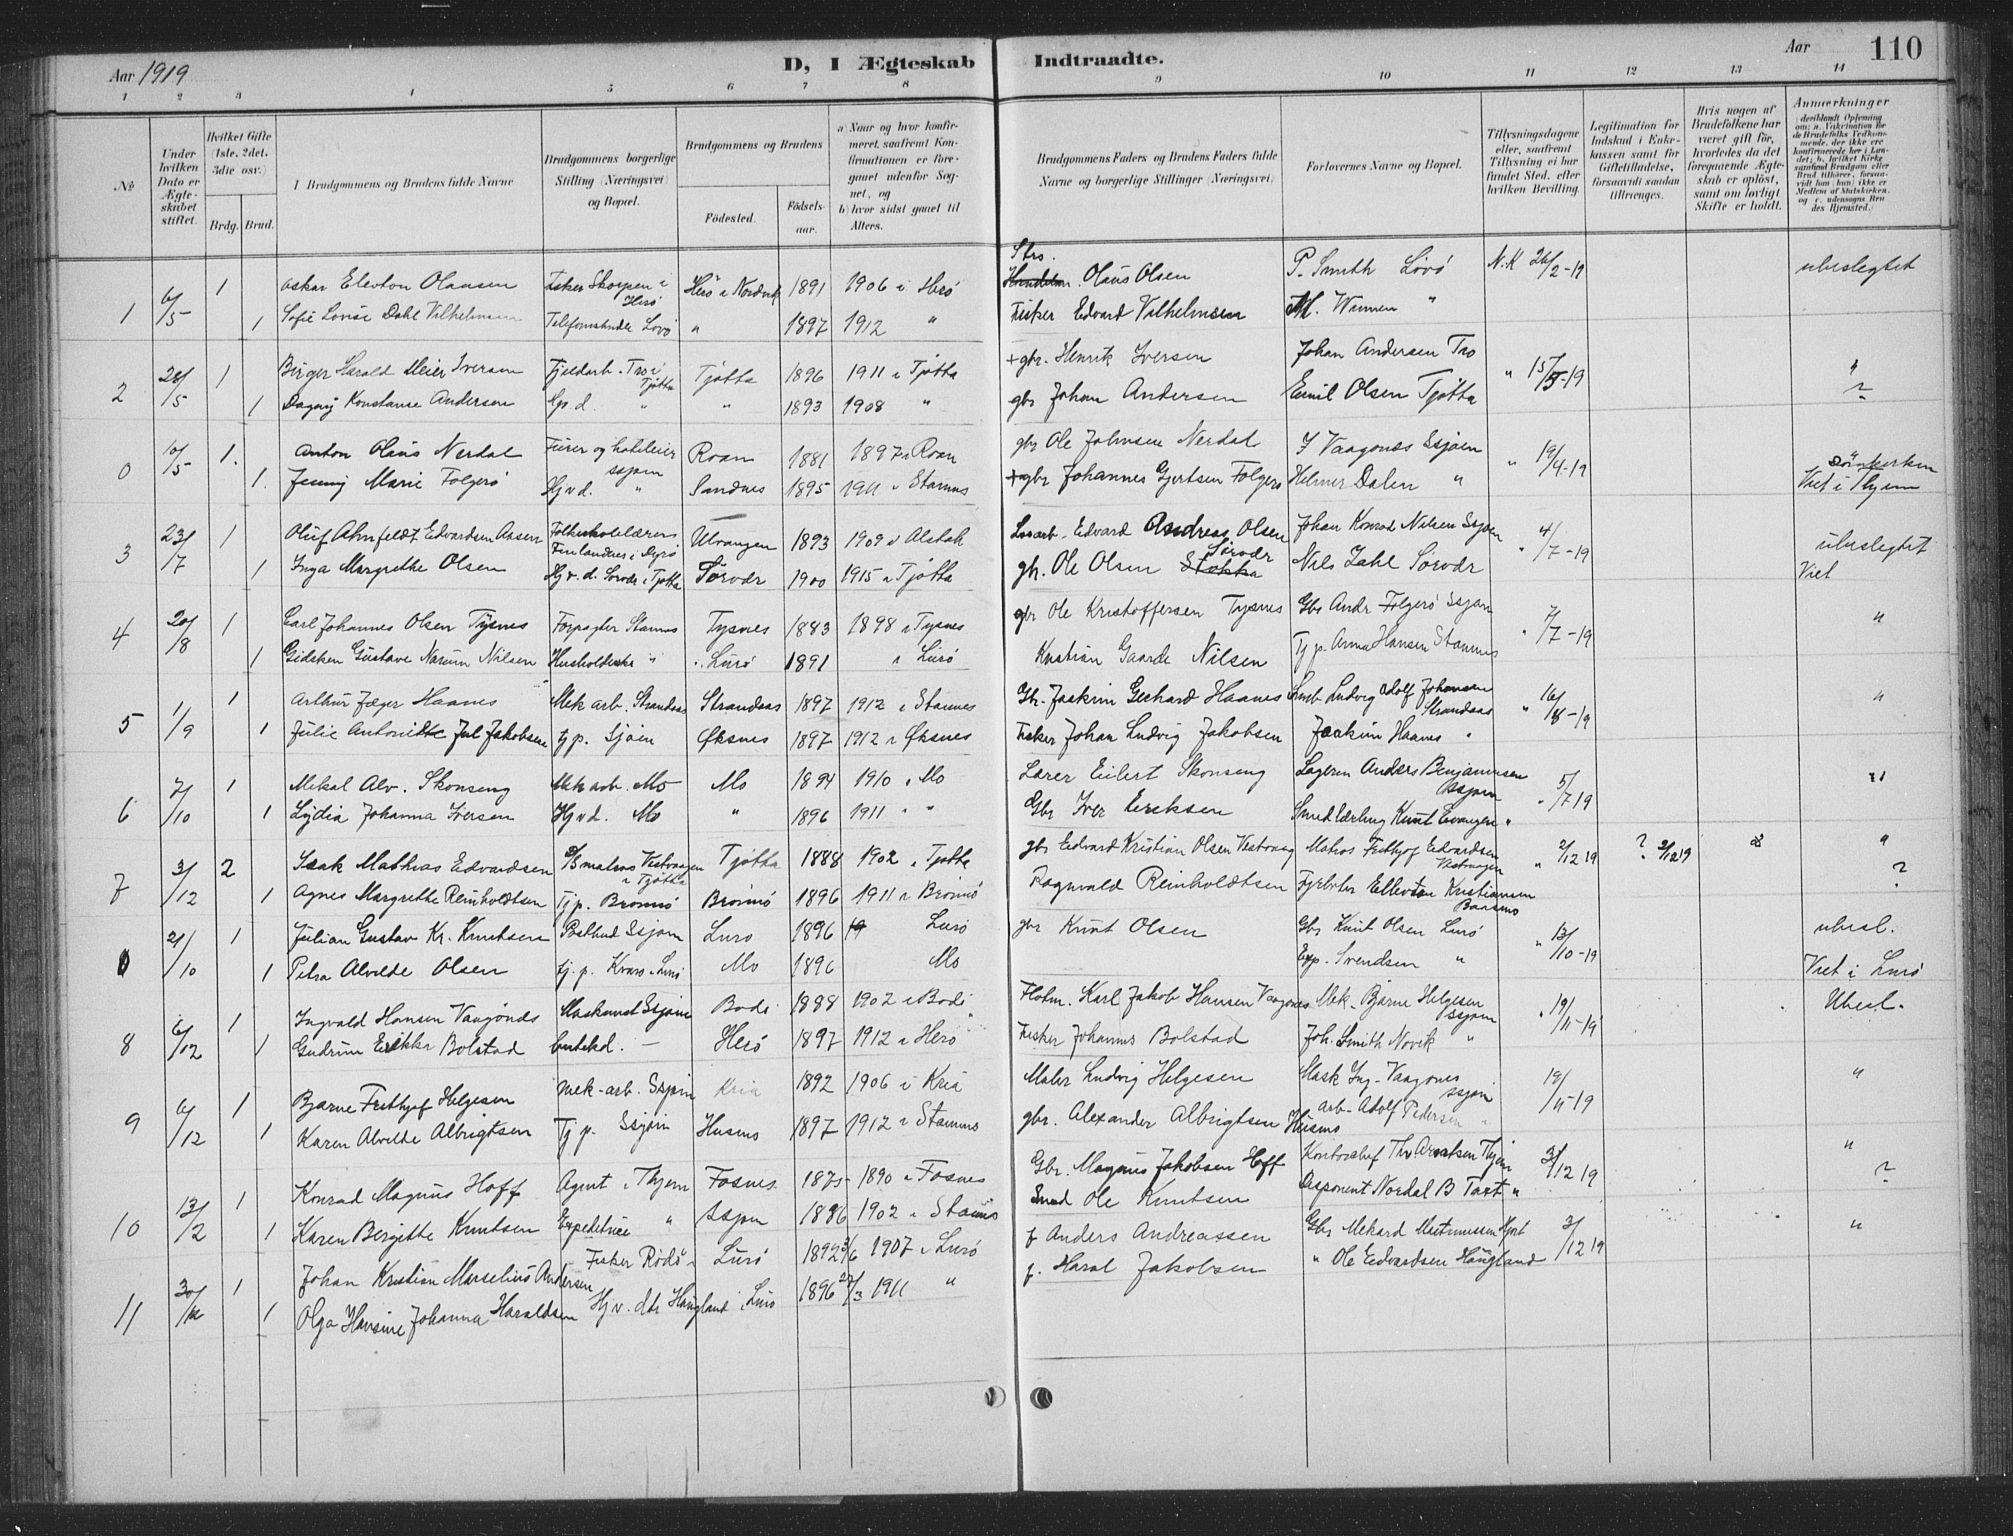 Aar 1919
D, I Ægteskab
Indtraadte.
Aar
110
1 2 3 4 5 6 7 8 9 10 11 12 13 14
No.
Under hvilken Dato er Ægteskabet stiftet.
Hvilket Gifte (1ste, 2det, 3die osv.)
Brdg. Brud.
1 Brudgommens og Brudens fulde Navne
Brudgommens borgerlige Stilling (Næringsvei) og Bopæl.
Brudgommens og Brudens
Födested.
Födselsaar.
a) Naar og hvor konfirmeret, saafremt Konfirmationen er foregaaet udenfor Sognet, og
b) hvor sidst gaaet til Alters.
Brudgommens Faders og Brudens Faders fulde Navne og borgerlige Stillinger (Næringsvei)
Forlovernes Navne og Bopæl.
Tillysningsdagene eller, saafremt Tillysning ei har fundet Sted, efter hvilken Bevilling.
Legitimation for Indskud i Enkekassen samt for Giftetilladelse, forsaavidt saadan tiltrænges.
Hvis nogen af Brudefolkene har været gift før, hvorledes da det foregaaende Ægteskab er opløst, samt om lovligt Skifte er holdt.
Anmærkninger
1 6/5 1 Oskar Elevton Olausen Fisker Skorpen i Herö Herö i Nordvik 1891 1906 i Herö Strs. Olaus Olsen P. Smith Lovö N.K 26/2-19 ubeslegtet
1 Sofie Lovise Dahl Vilhelmsen Telefonstyrer Lovö " 1897 1912 " Fisker Edvard Vilhelmsen
2 28/5 1 Birger Harald Meier Iversen Fjeldarb. Tro i Tjøtta Tjøtta 1896 1911 i Tjøtta + gbr. Henrik Iversen Johan Andersen Tro " 15/5-19 "
1 Dagny Konstanse Andersen " " 1893 1908 " gbr Johan Andersen Emil Olsen Tjøtta ?
0 10/5 1. Anton Olaus Nerdal hoteleier Ssjøen Roan 1881 1897 i Roan gbr Ole Johnsen Nerdal I Vaagönes Ssjøen " 19/4-19 "
1. Jenny Marie Folgerö Hjv d. " Sandnes 1895 1911 i Stamnes + gbr Johannes Gjertsen Folgerö Helmer Dalen " Viet i Thjem
3 23/7 1 Oluf Ahnfeldt Edvardsen Aasen Folkeskolelærer Utvangen 1893 1909 i Alstah Edvard Andreas Olsen Johan Konrad Nilsen Ssjøen " 4/7-19 ubeslegtet
1 Inga Margrethe Olsen Hjv. d. Sörvdr i Tjøtta Sørvdr 1900 1915 i Tjøtta gbr. Ole Olsen Stokka Sörvdr Nils Zahl Sørvdr Viet
4 20/8 1 Carl Johannes Olsen Tysnes Forpagter Stamnes Tysnes 1883 1898 i Tysnes gbr Ole Kristoffersen Tysnes Gbr Andr Folgerö Ssjøen " 7/7-19 "
1 Gidsken Gustave Narum Nilsen Husholderske " Lurö 1891 i Lurö Kristian Gaarde Nilsen Tj p. Anna Hansen Stamnes
5 1/9 1 Arthur Jæger Haanes Mek arb. Strandaas Strandaas 1897 1912 i Stamnes Gbr. Joakim Gerhard Haanes Smb Ludvig Adolf Johansen Strandaas " 16/8-19 "
1 Julie Antonidte Jul Jakobsen tj p. Sjøen Øksnes 1897 1912 i Øksnes Fisker Johan Ludvig Jakobsen Joakim Haanes "
6 7/10 1 Mikal Alv. Skonseng Mek arb. Mo Mo 1894 1910 i Mo Lærer Eilert Skonseng Lagerm Anders Benjaminsen Ssjøen " 5/7 19 "
1 Lydia Johanna Iversen Hjvd. Mo " 1896 1911 " " Gbr Iver Eriksen Smedlærling Knut Evangen "
7 3/12 2 Isak Mathias Edvardsen D/S matros Vestvaagen i Tjøtta Tjøtta 1888 1902 i Tjøtta gbr Edvard Kristian Olsen Vestvaag Matros Frithjof Edvardsen Vestvaagen " 2/12 19 ? 2/12 19 "
1 Agnes Margrethe Reinholdtsen Tj p. Brönnö Brönnö 1896 1911 i Brönnö Ragnvald Reinholdtsen Fyrböter Ellevton Kristiansen Baasmo ?
0 21/10 1 Julian Gustav Kr. Knutsen Postbud Ssjøen Lurö 1896 Lurö gbr Knut Olsen Gbr Knut Olsen Lurö " 13/10-19 ubesl.
1 Petra Alvilde Olsen tj. p. Kvarö Lurö Mo 1896 Mo Exp. Svendsen " Viet i Lurö
8 6/12 1 Ingvald Hansen Vaagönes Maskinist Ssjøen Bodö 1888 1902 i Bodö Flotm. Karl Jakob Hansen Vaagönes Mek. Bjarne Helgesen Ssjøen " 19/11-19 Ubesl.
1 Gudrun Erikka Bolstad Butikd. — Herö 1897 1912 i Herö Fisker Johannes Bolstad Joh. Smith Novik "
9 6/12 1 Bjarne Frithjof Helgesen Mek-arb. Ssjøen Kria 1892 1906 i Kria Maler Ludvig Helgesen Mask Ing. Vaagönes Ssjøen 19/11-19 "
1 Karen Alvilde Albrigtsen Tj p. Ssjøen Husmo 1897 1912 i Stamnes gbr. Alexander Albrigtsen Husmo arb. Adolf Pedersen "
10 13/2 1 Konrad Magnus Hoff Agent i Thjem Fosnes 1875 1890 i Fosnes Gbr. Magnus Jakobsen Hoff Kontorchef Thv Arentsen Thjem 3/12 19 "
1 Karen Bergitte Knutsen Expeditrice " Ssjøen 1886 1902 i Stamnes Smed Ole Knutsen Disponent Nordal B Tast " ?
11 30/12 1 Johan Kristian Marselius Andersen Fisker Rödö Lurö 1892 3/6 1907 i Lurö f Anders Andreassen Gbr Mekard 3/12 19 "
1 Olga Hansine Johanna Haraldsen Hjv. dtr Haugland i Lurö 1896 28/3 1911 " f. Haral Jakobsen " Ole Edvardsen Haugland